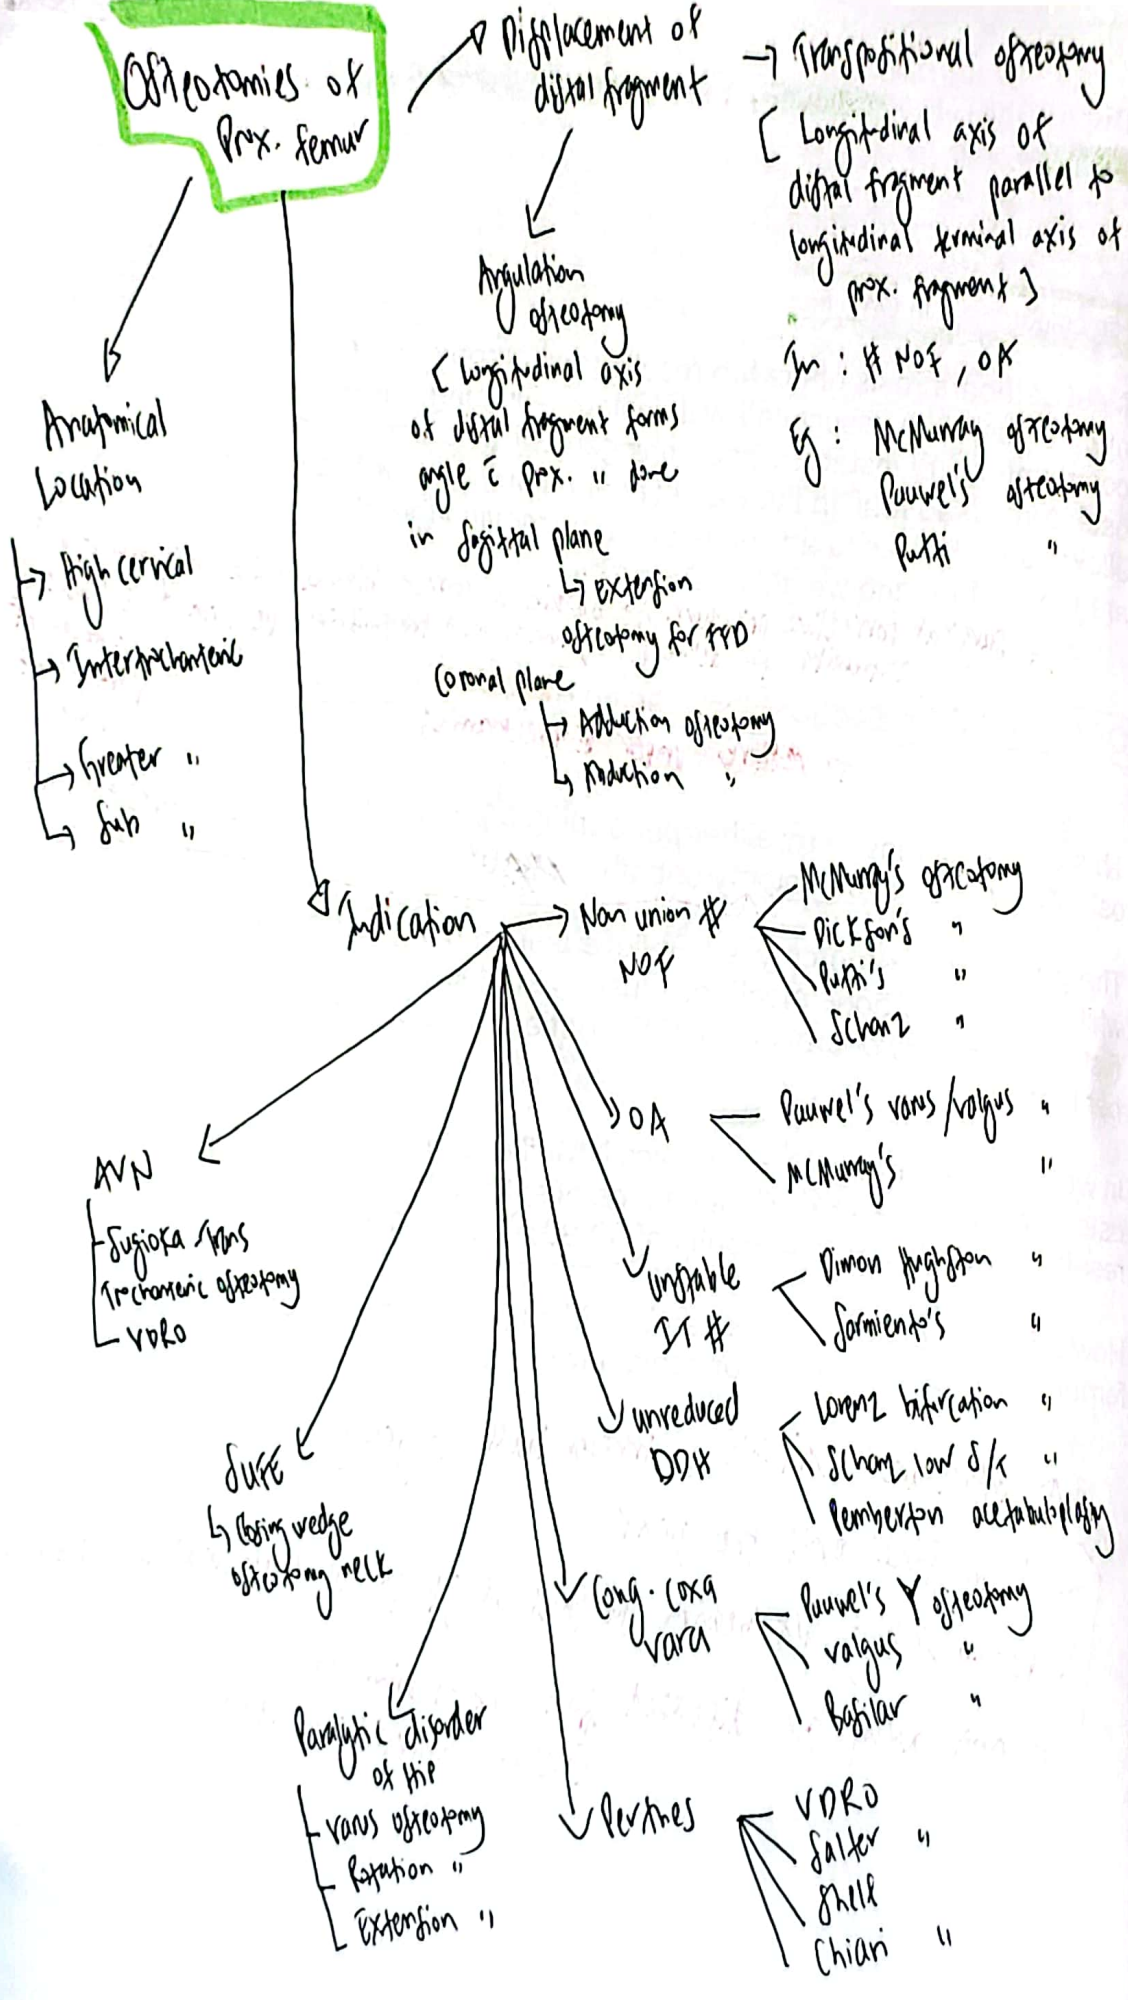 Osteotomies of
Prox. femur
Displacement of
distal fragment
→ Transpositional osteotomy
[ Longitudinal axis of
distal fragment parallel to
longitudinal terminal axis of
prox. fragment ]
In : # NOF, OA
Eg : McMurray osteotomy
Pauwel's osteotomy
Putti "
Angulation
osteotomy
[ Longitudinal axis
of distal fragment forms
angle c̄ prox. " done
in sagittal plane
↳ extension
osteotomy for FFD
Coronal plane
→ Adduction osteotomy
↳ Abduction "
Anatomical
Location
→ High cervical
→ Intertrochanteric
→ Greater "
→ Sub "
Indication
→ Non union #
NOF
McMurray's osteotomy
Dickson's "
Putti's "
Schanz "
OA
Pauwel's varus/valgus "
McMurray's "
Unstable
IT #
Dimon Hughston "
Sarmiento's "
unreduced
DDH
Lorenz bifurcation "
Schanz low S/T "
Pemberton acetabuloplasty
Cong. coxa
vara
Pauwel's Y osteotomy
valgus "
Basilar "
Perthes
VDRO
Salter "
Shelf
Chiari "
AVN
Sugioka Trans
Trochanteric osteotomy
VDRO
SUFE
↳ Closing wedge
osteotomy neck
Paralytic disorder
of Hip
varus osteotomy
Rotation "
Extension "